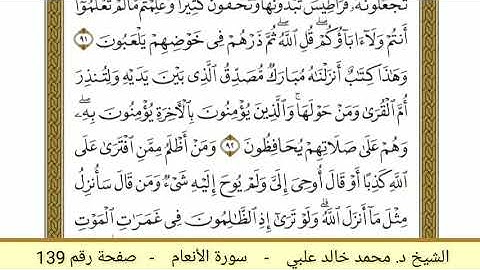 تَجْعَلُونَهُۥ قَرَاطِيسَ تُبْدُونَهَا وَتُخْفُونَ كَثِيرًا ۖ وَعُلِّمْتُم مَّا لَمْ تَعْلَمُوٓا۟
أَنتُمْ وَلَآ ءَابَآؤُكُمْ ۖ قُلِ ٱللَّهُ ۖ ثُمَّ ذَرْهُمْ فِى خَوْضِهِمْ يَلْعَبُونَ ٩١
وَهَٰذَا كِتَٰبٌ أَنزَلْنَٰهُ مُبَارَكٌ مُّصَدِّقُ ٱلَّذِى بَيْنَ يَدَيْهِ وَلِتُنذِرَ
أُمَّ ٱلْقُرَىٰ وَمَنْ حَوْلَهَا ۚ وَٱلَّذِينَ يُؤْمِنُونَ بِٱلْءَاخِرَةِ يُؤْمِنُونَ بِهِۦ ۖ
وَهُمْ عَلَىٰ صَلَاتِهِمْ يُحَافِظُونَ ٩٢ وَمَنْ أَظْلَمُ مِمَّنِ ٱفْتَرَىٰ عَلَى
ٱللَّهِ كَذِبًا أَوْ قَالَ أُوحِىَ إِلَىَّ وَلَمْ يُوحَ إِلَيْهِ شَىْءٌ وَمَن قَالَ سَأُنزِلُ
مِثْلَ مَآ أَنزَلَ ٱللَّهُ ۗ وَلَوْ تَرَىٰٓ إِذِ ٱلظَّٰلِمُونَ فِى غَمَرَٰتِ ٱلْمَوْتِ
الشيخ د. محمد خالد علبي - سورة الأنعام - صفحة رقم 139